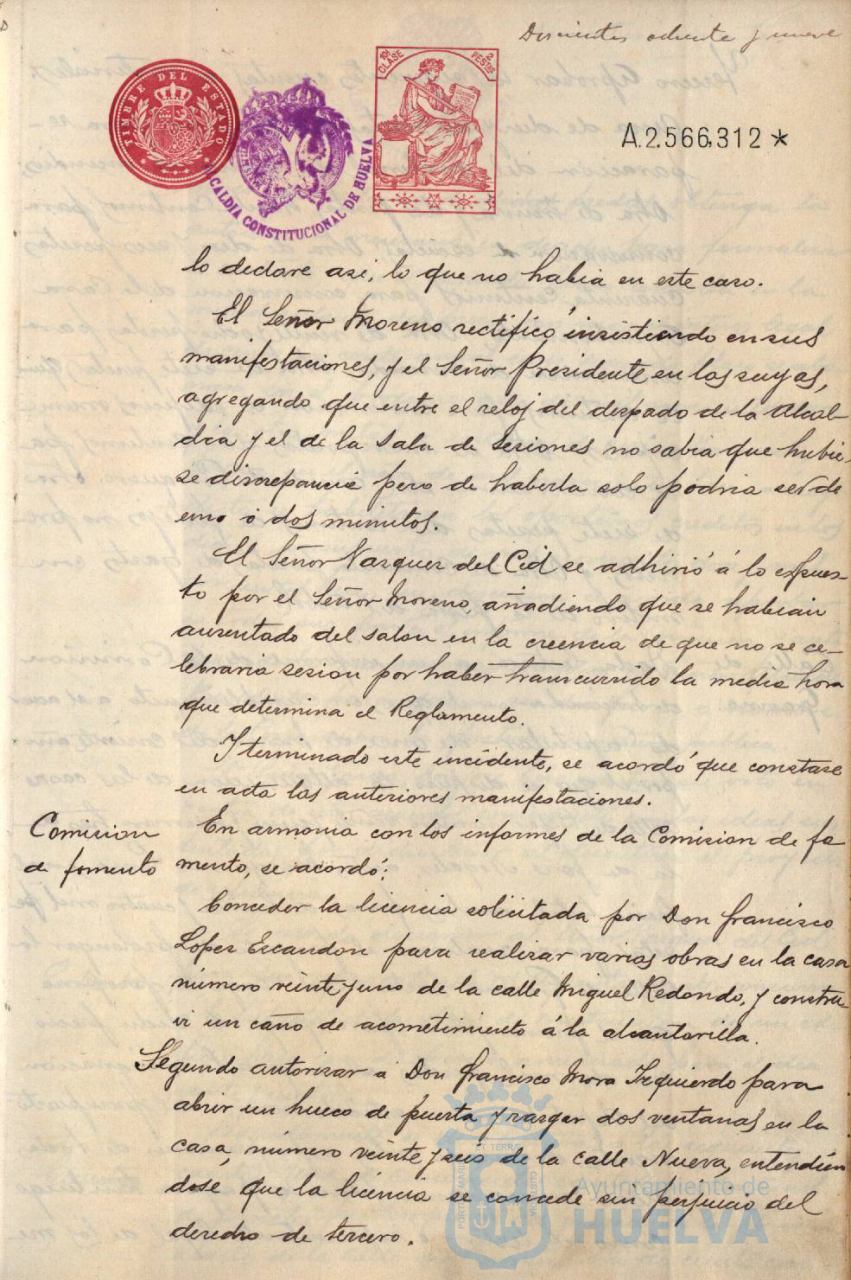 Doscientos ochenta y nueve
TIMBRE DEL ESTADO
ALCALDIA CONSTITUCIONAL DE HUELVA
10ª CLASE
2 PESETAS
A.2.566,312 *
lo declare asi, lo que no habia en este caso.
El Señor Moreno rectificó insistiendo en sus
manifestaciones, y el Señor Presidente en las suyas,
agregando que entre el reloj del despado de la Alcal-
dia y el de la Sala de sesiones no sabia que hubie-
se discrepancia pero de haberla solo podria ser de
uno ó dos minutos.
El Señor Vazquez del Cid se adhirió á lo expues-
to por el Señor Moreno, añadiendo que se habian
ausentado del salon en la creencia de que no se ce-
lebraria sesion por haber transcurrido la media hora
que determina el Reglamento.
I terminado este incidente, se acordó que constase
en acta las anteriores manifestaciones.
Comision
de fomento
En armonia con los informes de la Comision de fo
mento, se acordó:
Conceder la licencia solicitada por Don Francisco
Lopez Escandon para realizar varias obras en la casa
número veinte y uno de la calle Miguel Redondo, y constru-
ir un caño de acometimiento á la alcantarilla.
Segundo autorizar á Don Francisco Mora Izquierdo para
abrir un hueco de puerta y rasgar dos ventanas en la
casa, número veinte y seis de la calle Nueva, entendién
dose que la licencia se concede sin perjuicio del
derecho de tercero.
Ayuntamiento de
HUELVA